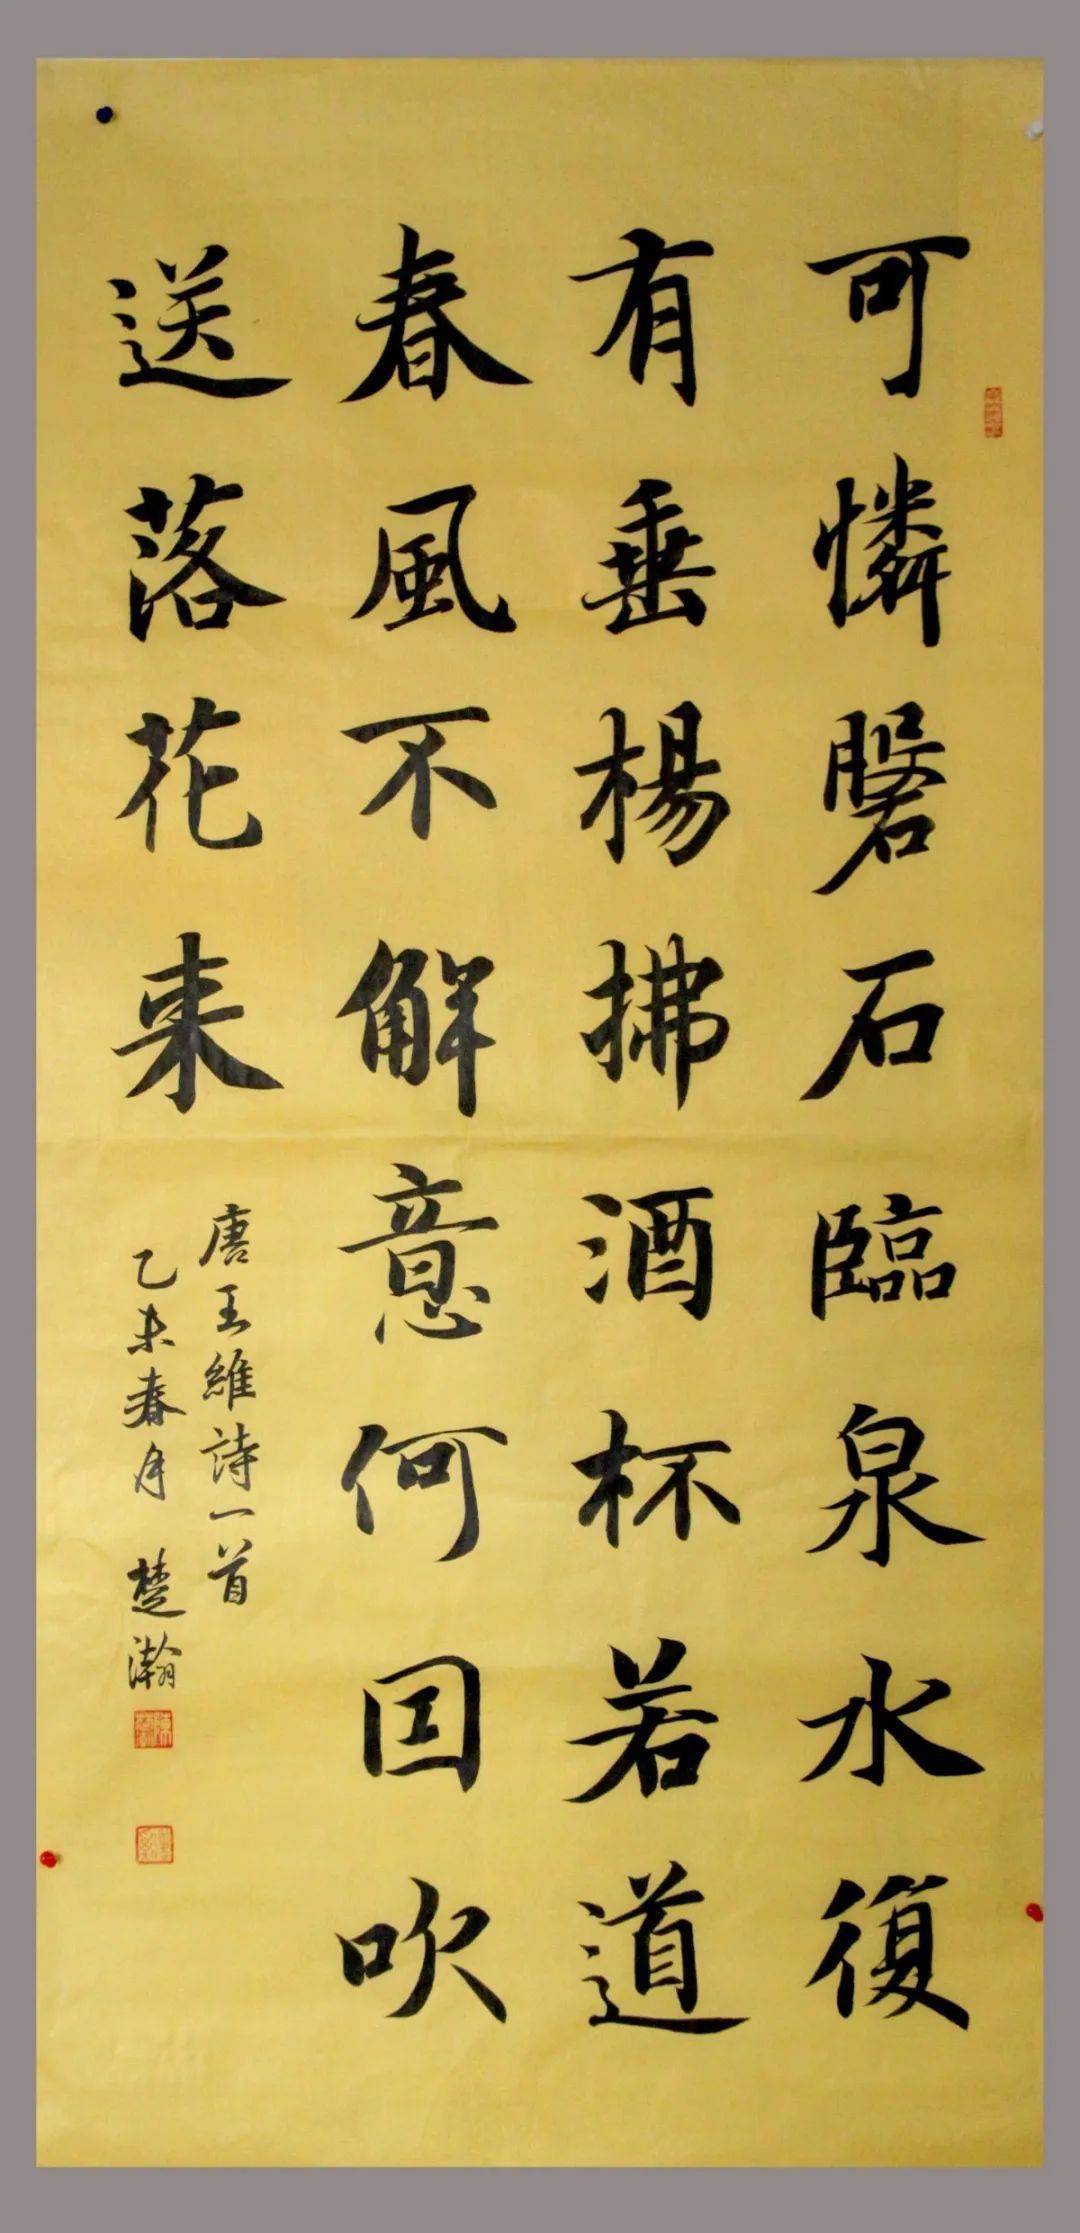 可憐磐石臨泉水復
有垂楊拂酒杯若道
春風不解意何因吹
送落花來
唐王維詩一首
乙未春月 楚瀚